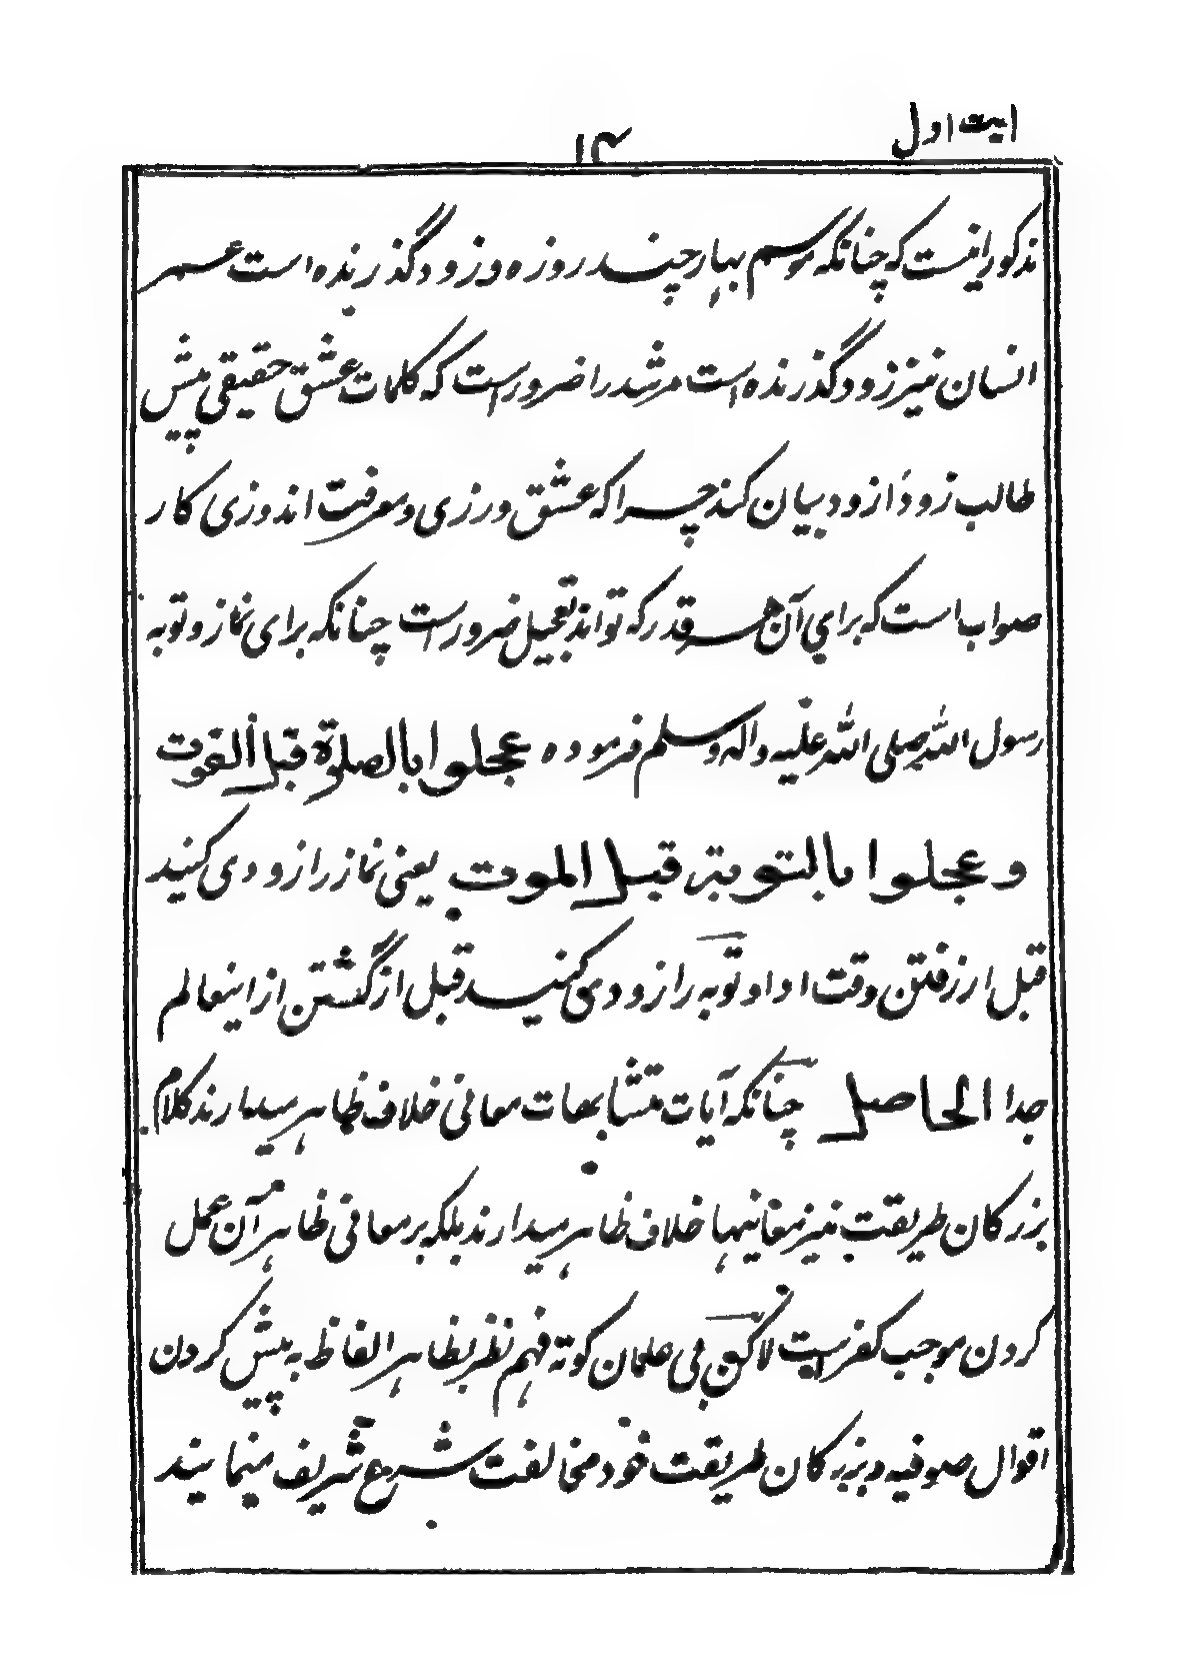 ابیت اول
۱۴
مذکور اینست که چنانکه موسم بهار چند روزه و زود گذرنده است عمر
انسان نیز زود گذرنده است مرشد را ضرور است که کلمات عشق حقیقی پیش
طالب زود از زود بیان کند چرا که عشق ورزی و معرفت اندوزی کار
صواب است که برای آن هر قدر که تواند تعجیل ضرور است چنانکه برای نماز و توبه
رسول الله صلی الله علیه واله وسلم فرموده عجلوا بالصلوة قبل الفوت
و عجلوا بالتوبة قبل الموت یعنی نماز را زودی کنید
قبل از رفتن وقت ادا و توبه را زودی کنید قبل از گشتن از اینعالم
جدا الحاصل چنانکه آیات متشابهات معانی خلاف ظاهر میدارند کلام
بزرگان طریقت نیز معانیها خلاف ظاهر میدارند بلکه بر معانی ظاهر آن عمل
کردن موجب کفر است لاکن بی علمان کوته فهم نظر بظاهر الفاظ به پیش کردن
اقوال صوفیه و بزرگان طریقت خود مخالفت شرع شریف مینمایند